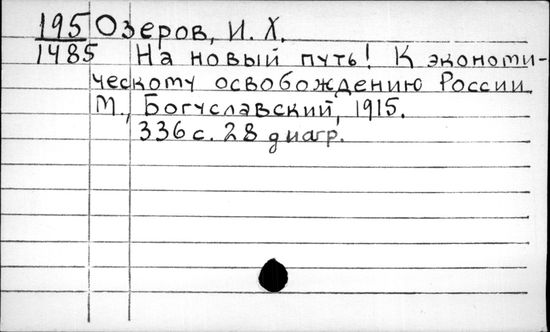 195 Озеров, И. Х.
1485 На новый путь! К экономи-
ческому освобождению России
М., Богуславский, 1915.
336 с. 28 диагр.